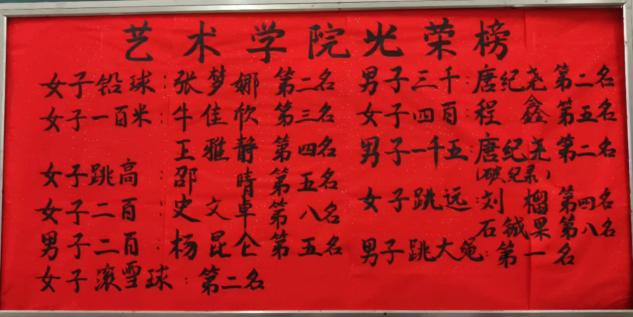 艺术学院光荣榜
女子铅球：张梦娜 第二名
女子一百米：牛佳欣 第三名
王雅静 第四名
女子跳高：邵晴 第五名
女子二百：史文卓 第八名
男子二百：杨昆仑 第五名
女子滚雪球：第二名
男子三千：唐纪尧 第二名
女子四百：程鑫 第五名
男子一千五：唐纪尧 第二名
(破纪录)
女子跳远：刘榴 第四名
石铖果 第八名
男子跳大绳：第一名